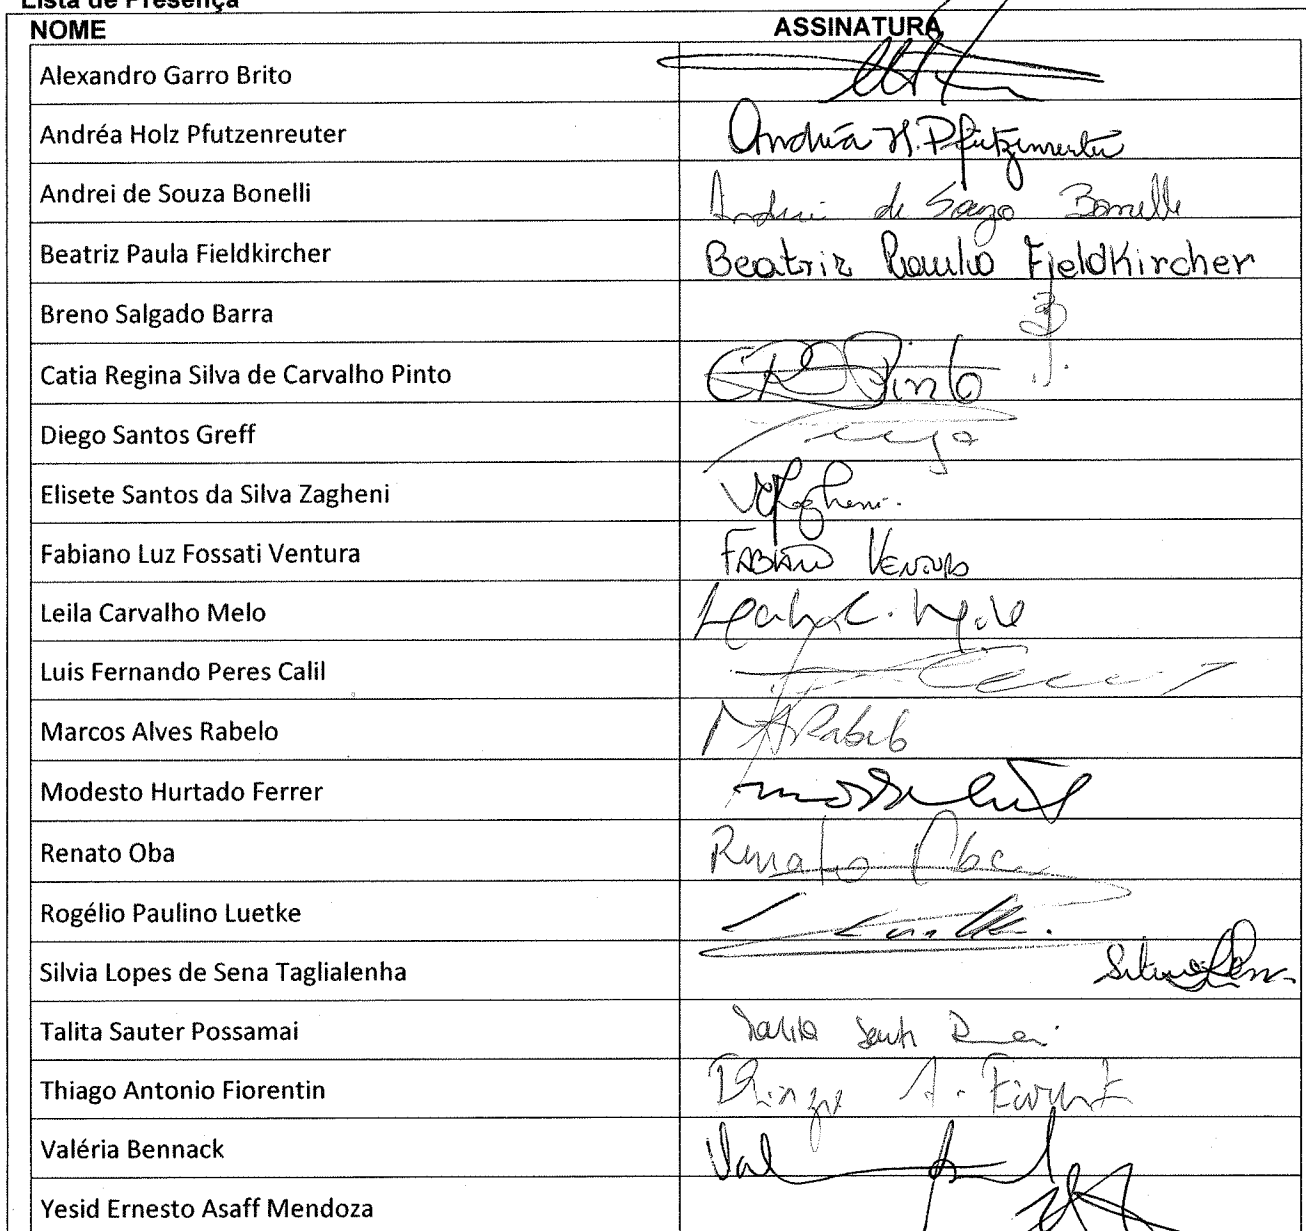 Lista de Presença
NOME ASSINATURA
Alexandro Garro Brito
Andréa Holz Pfutzenreuter Andréa H. Pfutzenreuter
Andrei de Souza Bonelli Andrei de Souza Bonelli
Beatriz Paula Fieldkircher Beatriz Paula Fieldkircher
Breno Salgado Barra B
Catia Regina Silva de Carvalho Pinto Pinto
Diego Santos Greff
Elisete Santos da Silva Zagheni Zagheni.
Fabiano Luz Fossati Ventura FABIANO VENTURA
Leila Carvalho Melo
Luis Fernando Peres Calil
Marcos Alves Rabelo MARabelo
Modesto Hurtado Ferrer
Renato Oba Renato Oba
Rogélio Paulino Luetke
Silvia Lopes de Sena Taglialenha
Talita Sauter Possamai Talita
Thiago Antonio Fiorentin Thiago A. Fiorentin
Valéria Bennack Val
Yesid Ernesto Asaff Mendoza